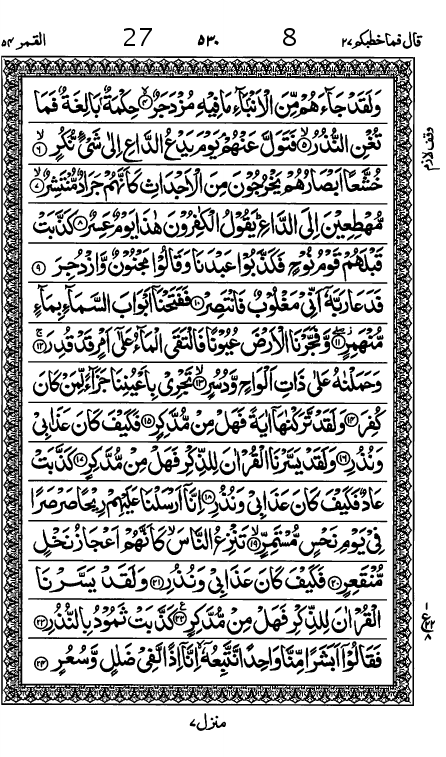 قال فما خطبكم ٢٧ 8 ٥٣٠ 27 القمر ٥٤
وَلَقَدْ جَآءَهُمْ مِّنَ الْاَنْۢبَآءِ مَا فِیْهِ مُزْدَجَرٌ ۙ﴿۴﴾ حِكْمَةٌۢ بَالِغَةٌ فَمَا
تُغْنِ النُّذُرُ ۙ﴿۵﴾ فَتَوَلَّ عَنْهُمْ ۘ یَوْمَ یَدْعُ الدَّاعِ اِلٰی شَیْءٍ نُّكُرٍ ۙ﴿۶﴾
وقف لازم
خُشَّعًا اَبْصَارُهُمْ یَخْرُجُوْنَ مِنَ الْاَجْدَاثِ كَاَنَّهُمْ جَرَادٌ مُّنْتَشِرٌ ۙ﴿۷﴾
مُّهْطِعِیْنَ اِلَی الدَّاعِ ؕ یَقُوْلُ الْكٰفِرُوْنَ هٰذَا یَوْمٌ عَسِرٌ ﴿۸﴾ كَذَّبَتْ
قَبْلَهُمْ قَوْمُ نُوْحٍ فَكَذَّبُوْا عَبْدَنَا وَقَالُوْا مَجْنُوْنٌ وَّازْدُجِرَ ﴿۹﴾
فَدَعَا رَبَّهٗۤ اَنِّیْ مَغْلُوْبٌ فَانْتَصِرْ ﴿۱۰﴾ فَفَتَحْنَاۤ اَبْوَابَ السَّمَآءِ بِمَآءٍ
مُّنْهَمِرٍ ۖ﴿۱۱﴾ وَّفَجَّرْنَا الْاَرْضَ عُیُوْنًا فَالْتَقَی الْمَآءُ عَلٰۤی اَمْرٍ قَدْ قُدِرَ ۚ﴿۱۲﴾
وَحَمَلْنٰهُ عَلٰی ذَاتِ اَلْوَاحٍ وَّدُسُرٍ ۙ﴿۱۳﴾ تَجْرِیْ بِاَعْیُنِنَا ۚ جَزَآءً لِّمَنْ كَانَ
كُفِرَ ﴿۱۴﴾ وَلَقَدْ تَّرَكْنٰهَاۤ اٰیَةً فَهَلْ مِنْ مُّدَّكِرٍ ﴿۱۵﴾ فَكَیْفَ كَانَ عَذَابِیْ
وَنُذُرِ ﴿۱۶﴾ وَلَقَدْ یَسَّرْنَا الْقُرْاٰنَ لِلذِّكْرِ فَهَلْ مِنْ مُّدَّكِرٍ ﴿۱۷﴾ كَذَّبَتْ
عَادٌ فَكَیْفَ كَانَ عَذَابِیْ وَنُذُرِ ﴿۱۸﴾ اِنَّاۤ اَرْسَلْنَا عَلَیْهِمْ رِیْحًا صَرْصَرًا
فِیْ یَوْمِ نَحْسٍ مُّسْتَمِرٍّ ۙ﴿۱۹﴾ تَنْزِعُ النَّاسَ ۙ كَاَنَّهُمْ اَعْجَازُ نَخْلٍ
مُّنْقَعِرٍ ﴿۲۰﴾ فَكَیْفَ كَانَ عَذَابِیْ وَنُذُرِ ﴿۲۱﴾ وَلَقَدْ یَسَّرْنَا
الْقُرْاٰنَ لِلذِّكْرِ فَهَلْ مِنْ مُّدَّكِرٍ ﴿۲۲﴾ كَذَّبَتْ ثَمُوْدُ بِالنُّذُرِ ﴿۲۳﴾
۱ ع ۲۲ ۸
فَقَالُوْۤا اَبَشَرًا مِّنَّا وَاحِدًا نَّتَّبِعُهٗۤ ۙ اِنَّاۤ اِذًا لَّفِیْ ضَلٰلٍ وَّسُعُرٍ ﴿۲۴﴾
منزل ۷